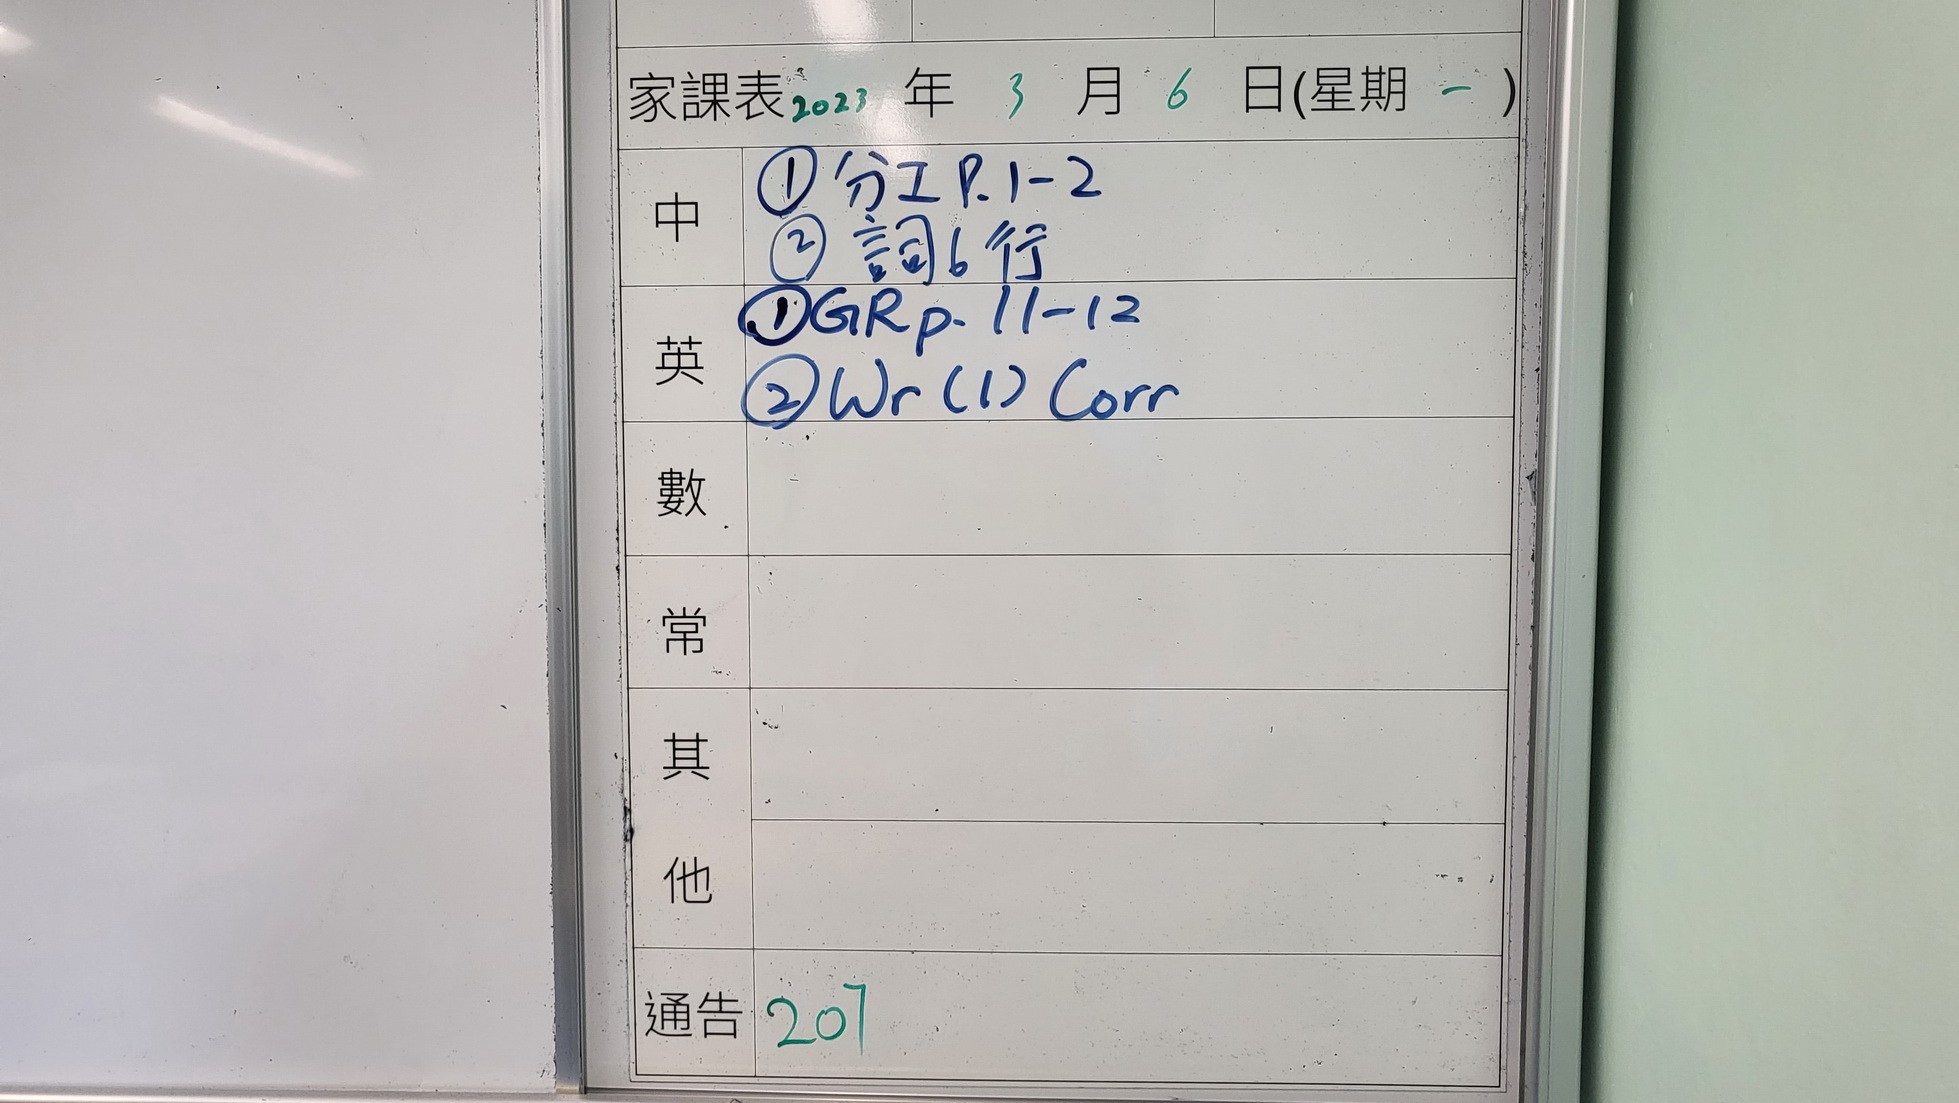 家課表 2023 年 3 月 6 日(星期 一 )
中
① 分工 P. 1-2
② 詞 6 行
英
① GR p. 11-12
② Wr (1) Corr
數
常
其
他
通告 207